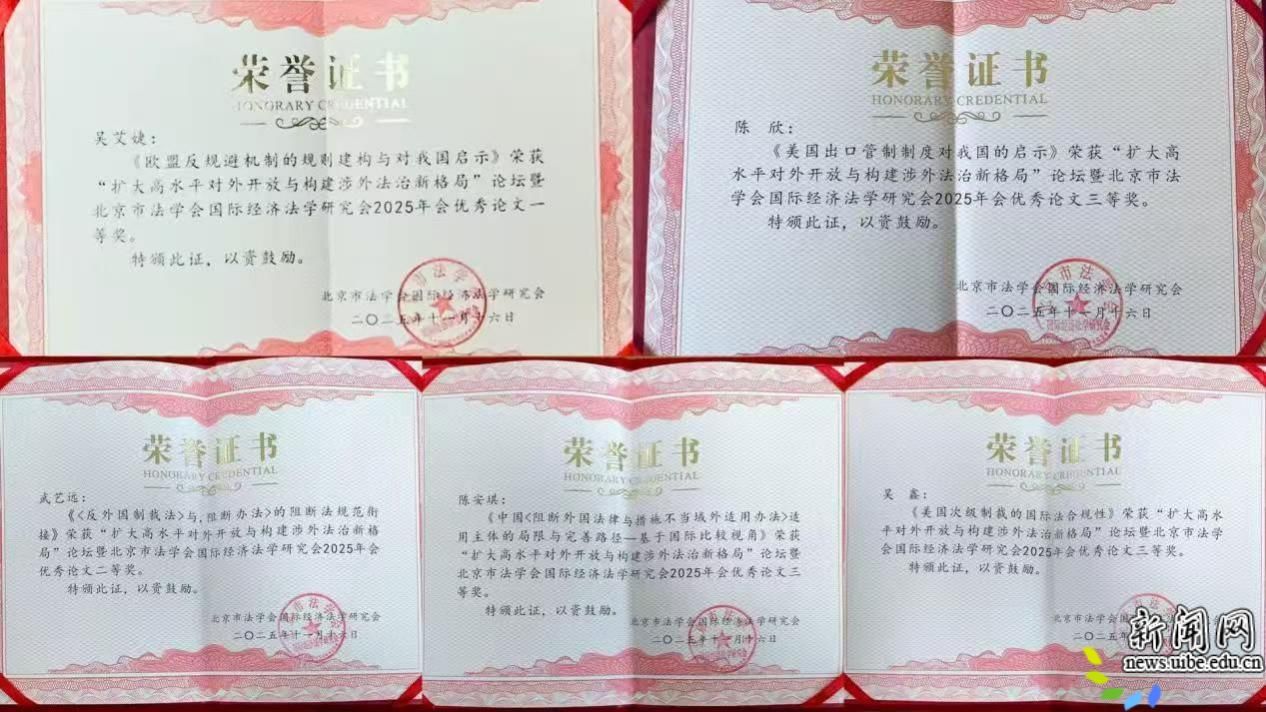 荣誉证书
HONORARY CREDENTIAL
吴艾婕：
《欧盟反规避机制的规则建构与对我国启示》荣获
“扩大高水平对外开放与构建涉外法治新格局”论坛暨
北京市法学会国际经济法学研究会2025年会优秀论文一
等奖。
特颁此证，以资鼓励。
北京市法学会国际经济法学研究会
二〇二五年十一月十六日
荣誉证书
HONORARY CREDENTIAL
陈 欣：
《美国出口管制制度对我国的启示》荣获“扩大高
水平对外开放与构建涉外法治新格局”论坛暨北京市法
学会国际经济法学研究会2025年会优秀论文三等奖。
特颁此证，以资鼓励。
北京市法学会国际经济法学研究会
二〇二五年十一月十六日
荣誉证书
HONORARY CREDENTIAL
武艺远：
《<反外国制裁法>与,阻断办法>的阻断法规范衔
接》荣获“扩大高水平对外开放与构建涉外法治新格
局”论坛暨北京市法学会国际经济法学研究会2025年会
优秀论文二等奖。
特颁此证，以资鼓励。
北京市法学会国际经济法学研究会
二〇二五年十一月十六日
荣誉证书
HONORARY CREDENTIAL
陈安琪：
《中国<阻断外国法律与措施不当域外适用办法>适
用主体的局限与完善路径—基于国际比较视角》荣获
“扩大高水平对外开放与构建涉外法治新格局”论坛暨
北京市法学会国际经济法学研究会2025年会优秀论文三
等奖。
特颁此证，以资鼓励。
北京市法学会国际经济法学研究会
二〇二五年十一月十六日
荣誉证书
HONORARY CREDENTIAL
吴 鑫：
《美国次级制裁的国际法合规性》荣获“扩大高水
平对外开放与构建涉外法治新格局”论坛暨北京市法学
会国际经济法学研究会2025年会优秀论文三等奖。
特颁此证，以资鼓励。
北京市法学会国际经济法学研究会
二〇二五年
新闻网
news.uibe.edu.cn